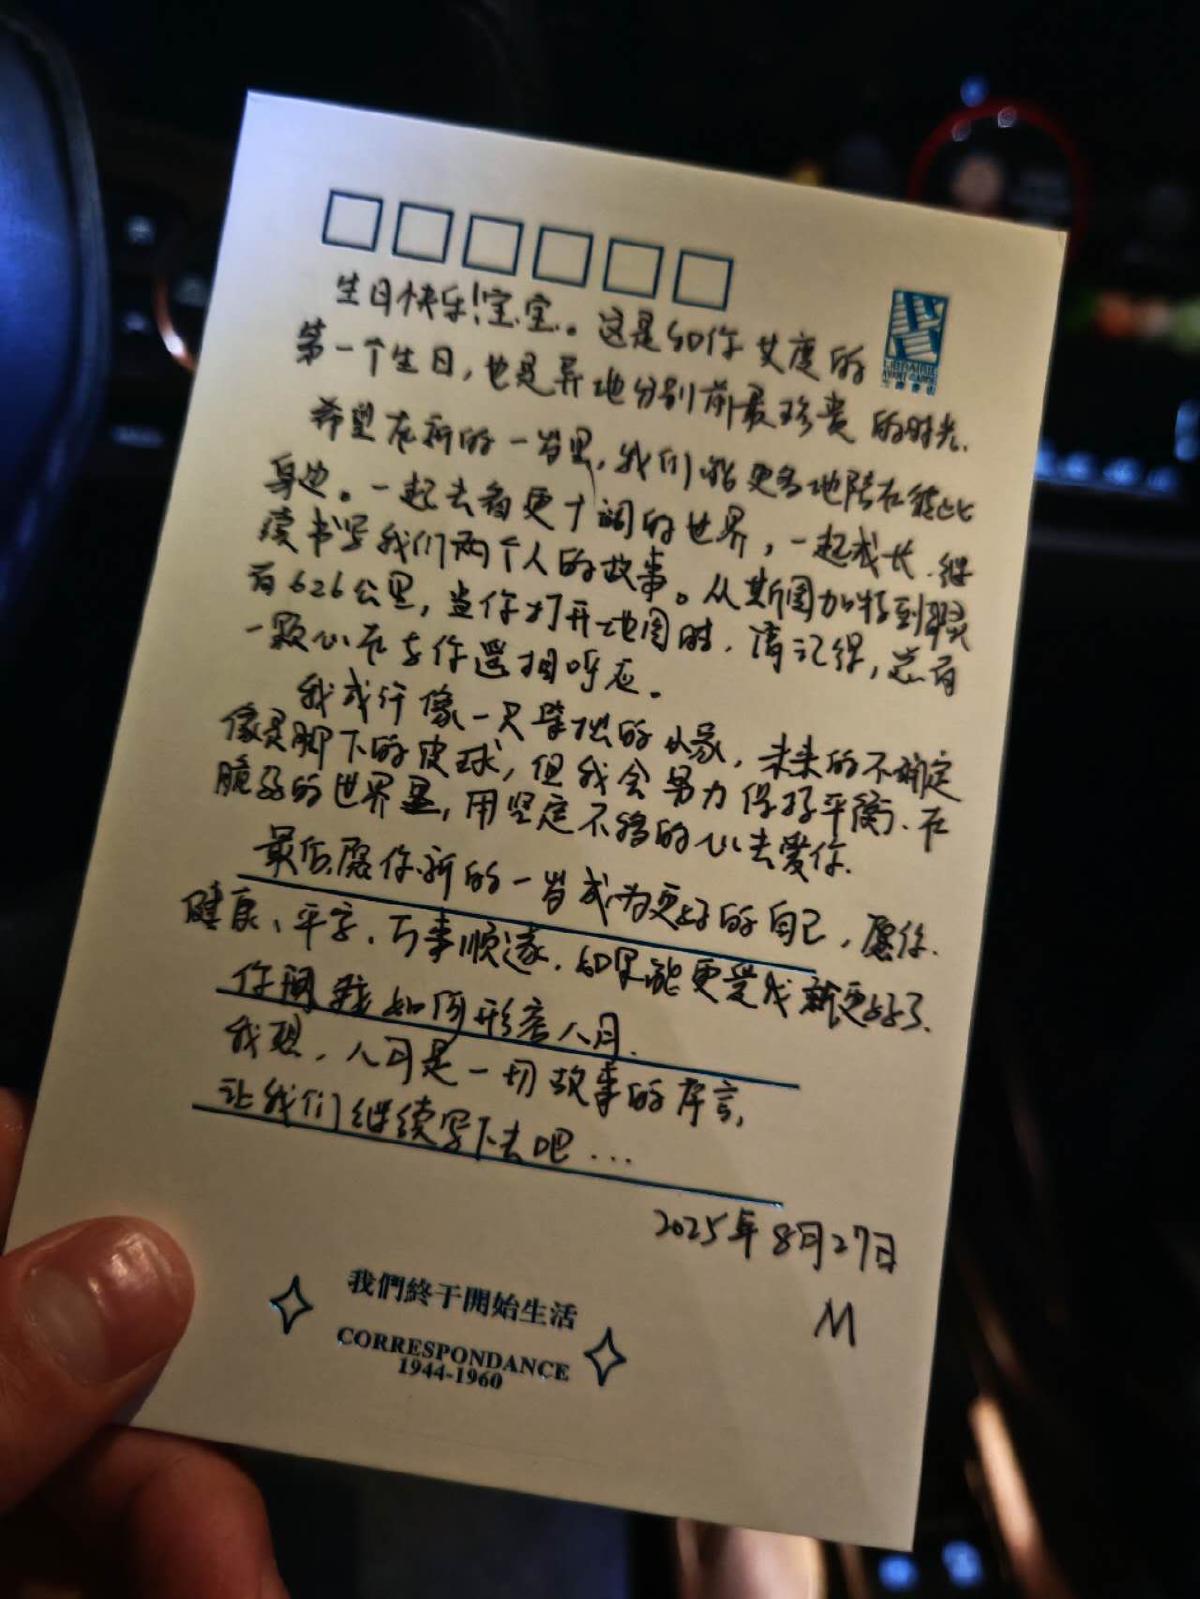 生日快乐!宝宝。这是和你共度的
第一个生日,也是异地分别前最珍贵的时光.
希望在新的一岁里,我们能更多地陪在彼此
身边。一起去看更广阔的世界,一起成长.继
续书写我们两个人的故事。从斯图加特到
有626公里,当你打开地图时,请记得,总有
一颗心在与你遥相呼应。
我或许像一只笨拙的小象,未来的不确定
像是脚下的皮球,但我会努力保持平衡.在
脆弱的世界里,用坚定不移的心去爱你.
最后,愿你新的一岁成为更好的自己,愿你.
健康、平安、万事顺遂.如果能更爱我就更好了.
你问我如何形容八月.
我想,八月是一切故事的序言,
让我们继续写下去吧...
2025年8月27日
M
我們終于開始生活
CORRESPONDANCE
1944-1960